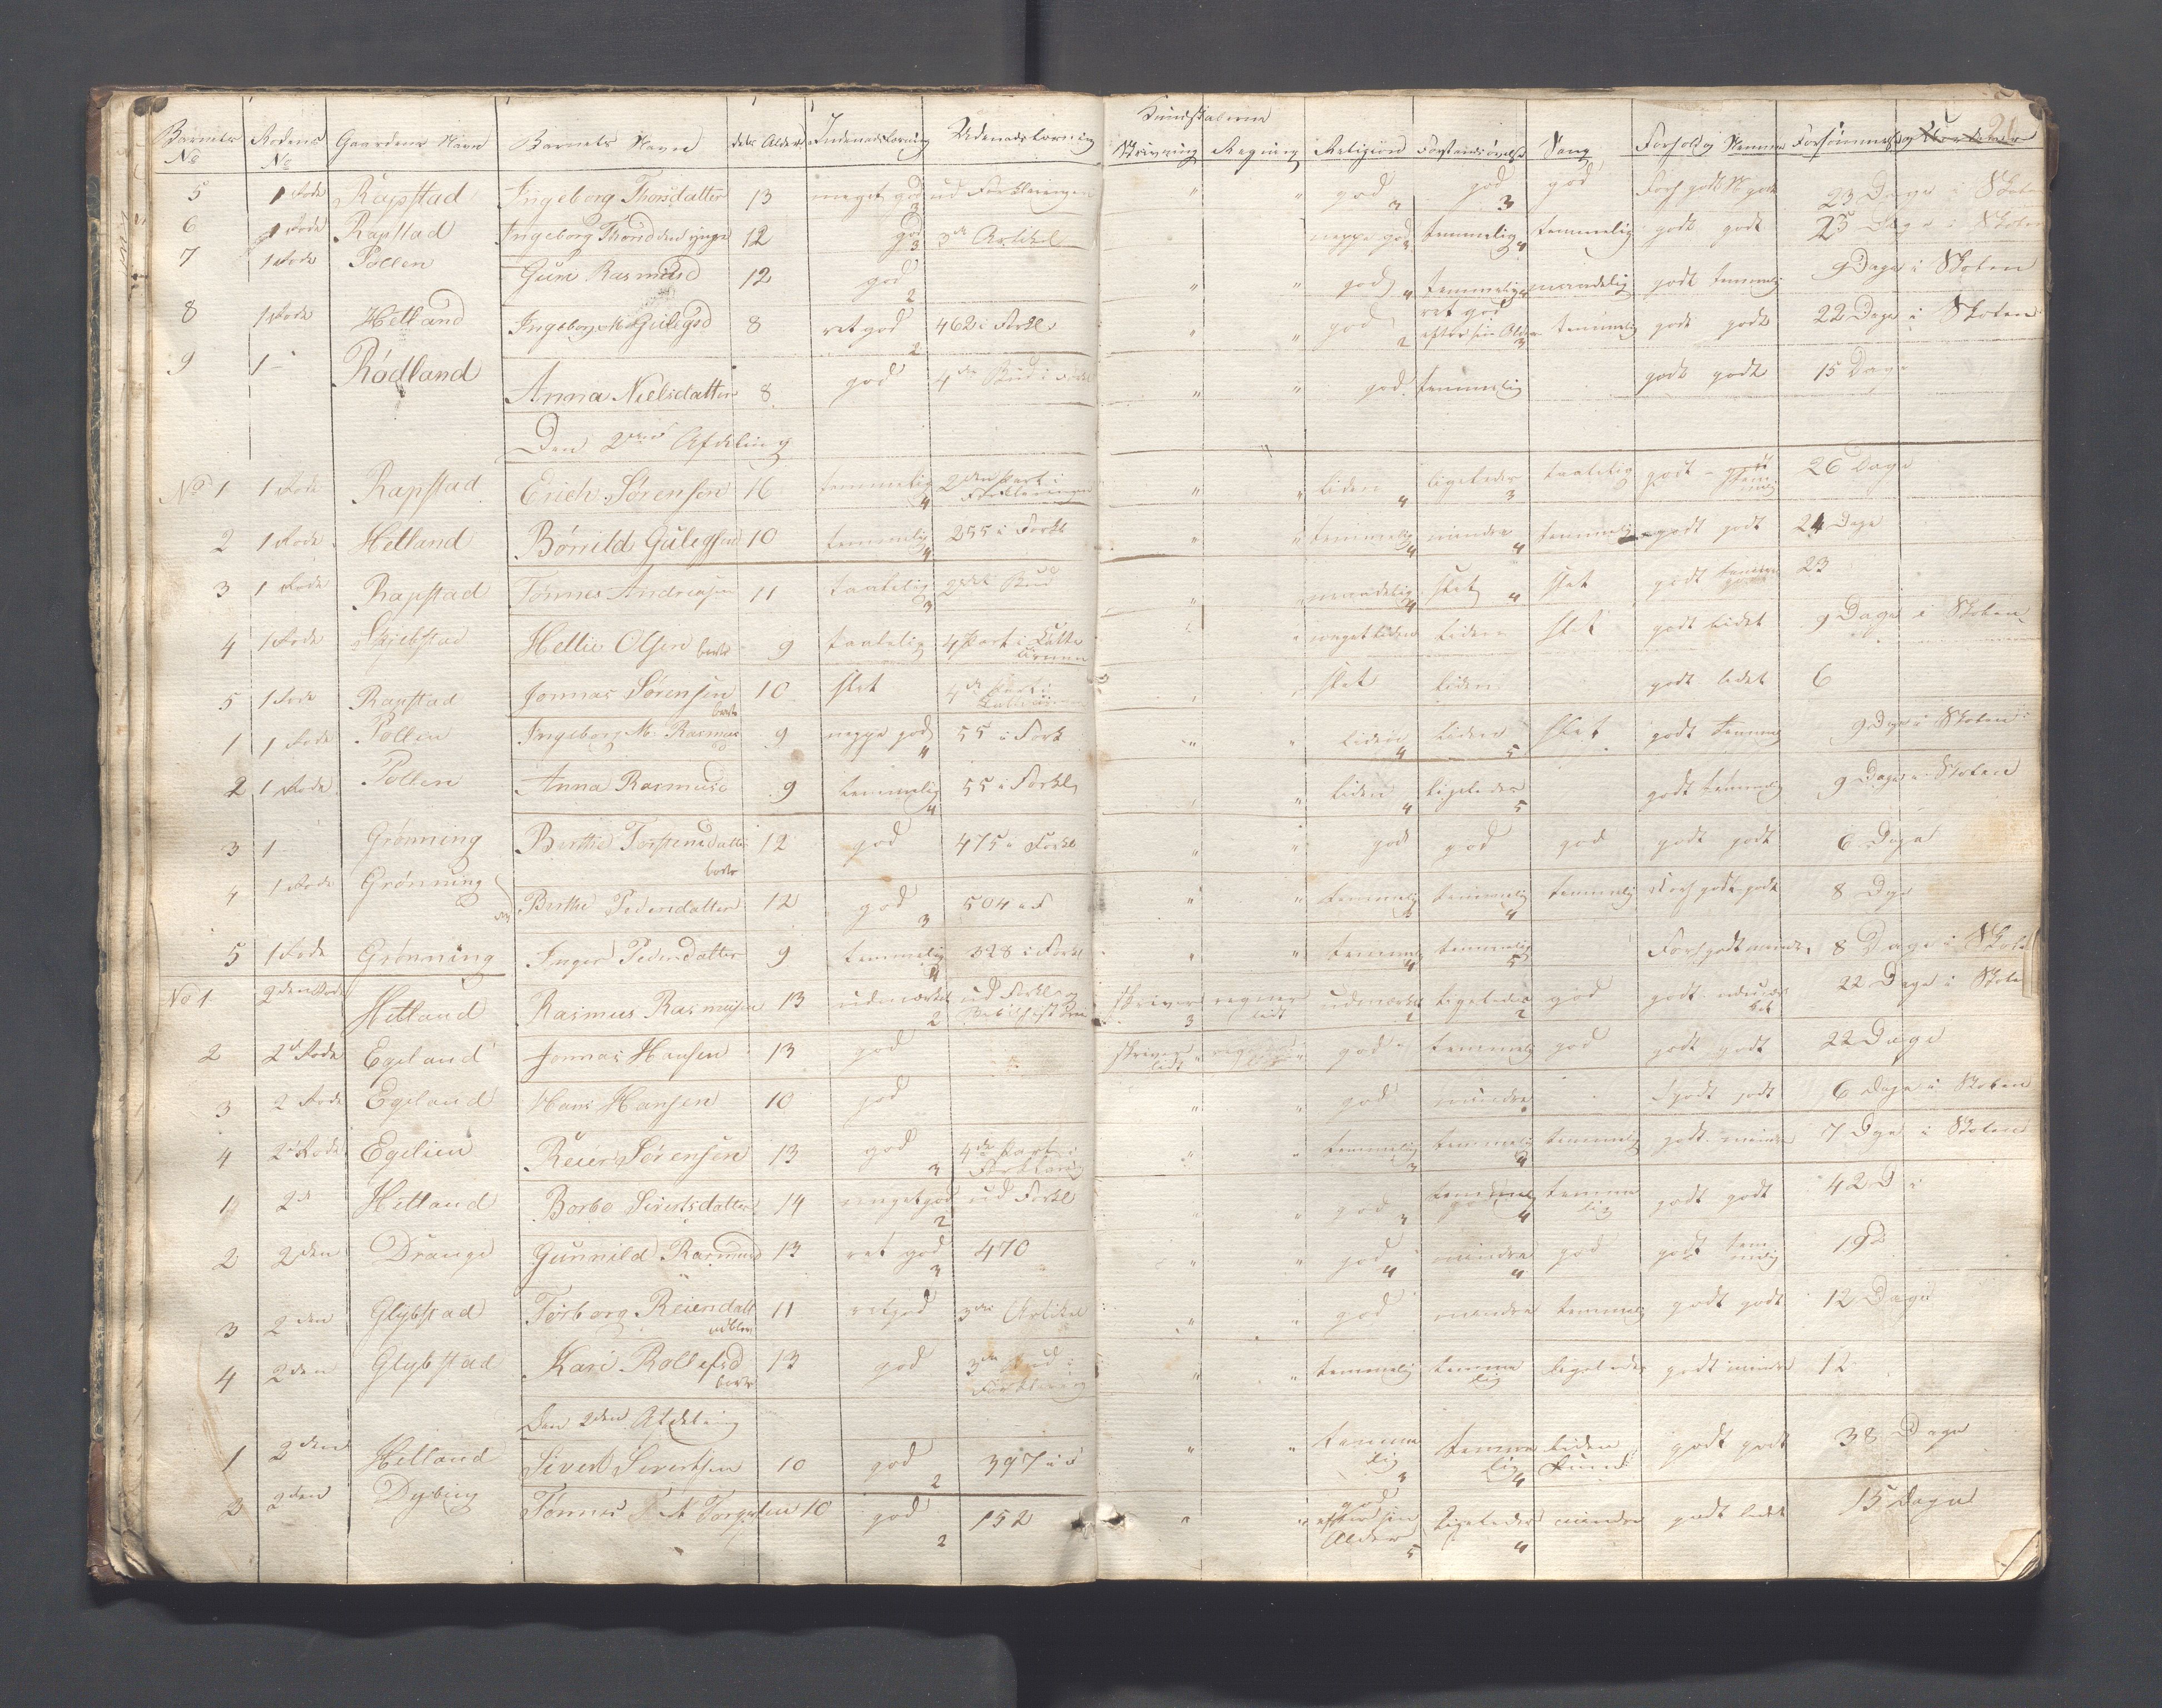 Kundskaberne
Barnets No Rodens No Gaardens Navn Barnets Navn dets Alder Indenadslæsning Udenadslæsning Skrivning Regning Religion Forstandsøvelse Sang Forhold og Nemme Forsømmelse
5 1 Rode Rapstad Ingeborg Thorsdatter 13 meget god 3 ud Forklaringen " " god 3 god 3 god Forh godt N godt 23 Dage i Skolen
6 1 Rode Rapstad Ingeborg Thorsd den yngre 12 god 3 3die Artikel neppe god 3 temmelig 4 temmelig godt godt 23 Dage i Skolen
7 1 Rode Pollen Guri Rasmusd 12 god 2 " " god 4 temmelig 4 maadelig godt temmelig 9 Dage i Skolen
8 1 Rode Hetland Ingeborg M Gulegsd 8 ret god 2 462 i Forkl " " god 2 ret god efter sin Alder 3 temmelig godt godt 22 Dage i Skolen
9 1 - Rødland Anna Nielsdatter 8 god 4de Bud i Forkl " " god temmelig godt godt 15 Dage
Den 2den Afdeling
No 1 1 Rode Rapstad Erich Sørensen 16 temmelig 4 2den Part i Forklaringen " " liden 4 ligeledes 3 taalelig godt - 26 Dage
2 1 Rode Hetland Bønild Gulegsen 10 temmelig 4 255 i Forkl " " temmelig 4 mindre 4 temmelig godt godt 24 Dage
3 1 Rode Rapstad Tønnes Andreasen 11 taalelig 3 2det Bud " " maadelig 4 slet 4 slet godt 23
4 1 Rode Hellie Olsen borte 9 taalelig 4 Part i " " meget liden liden slet godt lidet 9 Dage i Skolen
5 1 Rode Rapstad Jonnas Sørensen borte 10 slet 4de Part i " " slet liden godt lidet 6
1 1 Rode Pollen Ingeborg M. Rasmusd 9 neppe god 4 55 i Fork " " liden 4 liden 5 slet godt temmelig 9 Dage i Skolen
2 1 Rode Pollen Anna Rasmusd 9 temmelig 4 55 i Forkl " " liden 4 ligeledes 5 godt temmelig 9 Dage i Skolen
3 1 - Grønning Berthe Torstensdatter borte 12 god 475 i Forkl " " god god god godt godt 6 Dage
4 1 Rode Grønning Berthe Pedersdatter 12 god 3 504 i F " " temmelig 3 temmelig 4 temmelig Forh godt godt 8 Dage
5 1 Rode Grønning Inger Pedersdatter 9 temmelig 4 328 i Forkl " " temmelig 4 temmelig 5 Forh godt mindre 8 Dage i Skolen
No 1 2den Rode Hetland Rasmus Rasmusen 13 udmærket 2 ud Forkl og skriver 3 regner lidt udmærket 2 ligeledes 2 god godt 22 Dage i Skolen
2 2d Rode Egeland Jonnas Hansen 13 god skriver lidt god temmelig god godt godt 22 Dage
3 2 Rode Egeland Hans Hansen 10 god " " god mindre godt godt 6 Dage i Skolen
4 2d Rode Egelien Reier Sørensen 13 god 3 4de Part i Forklaring " " temmelig 3 temmelig 4 temmelig godt mindre 7 Dage i Skolen
1 2d Hetland Borbo Sivertsdatter 14 meget god 2 ud Forkl " " god 3 4 temmelig godt godt 42 D
2 2den Drange Gunnild Rasmusd 13 ret god 3 470 " " god 4 mindre 4 god godt temmelig 19
3 2den Glybstad Torborg Reiersdatt 11 ret god 3die Artikel " " god mindre temmelig godt godt 12 Dage
4 2den Glybstad Kari Rollefsd borte 13 god 3die Bud i Forklaring " " temmelig temmelig ligeledes godt mindre 12
Den 2den Afdeling
1 2den Hetland Sivert Sivertsen 10 god 2 397 i F " " temmelig 3 temmelig 4 liden godt godt 38 Dage
2 2den Dybing Tønnes Torgersen 10 god 2 152 " " god efter sin Alder 5 ligeledes 4 mindre godt lidet 15 Dage